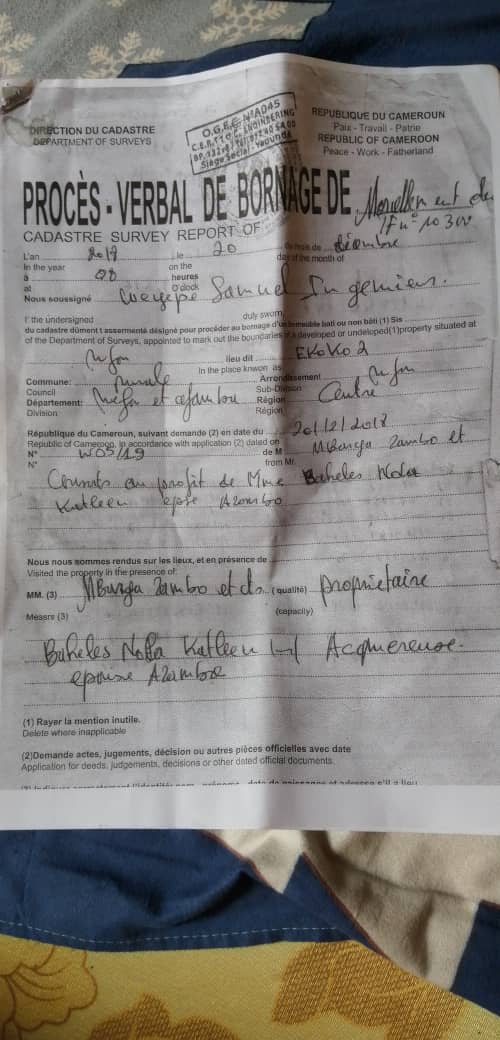 DIRECTION DU CADASTRE
DEPARTMENT OF SURVEYS
O.G.E.C N°A045
C.E.R.T.T.O.C. ENGINEERING
Siège Social: Yaoundé
REPUBLIQUE DU CAMEROUN
Paix - Travail - Patrie
REPUBLIC OF CAMEROON
Peace - Work - Fatherland
PROCÈS - VERBAL DE BORNAGE DE Morcellement du
TF n° 10300
CADASTRE SURVEY REPORT OF
L'an 2018 , le 20 du mois de décembre
In the year on the day of the month of
à 08 heures
at O'clock
Nous soussigné Samuel Ingenieur.
I' the undersigned duly sworn,
du cadastre dûment l assermenté désigné pour procéder au bornage d'un immeuble bâti ou non bâti (1) Sis
of the Department of Surveys, appointed to mark out the boundaries of a developed or undeloped(1)property situated at
Mfou lieu dit EKOKO 2
In the place knwon as
Commune: Rurale Arrondissement Mfou
Council Sub-Division
Département: Mefou et afamba Région Centre
Division Région
République du Cameroun, suivant demande (2) en date du 20/12/2018
Republic of Cameroon, in accordance with application (2) dated on
N° W05/19 de M Mbarga Zambo et
N° from Mr.
Consorts au profit de Mme Baheles Nola
Katleen épse Azambo
Nous nous sommes rendus sur les lieux, et en présence de
Visited the property in the presence of:
MM. (3) MBarga Zambo et cts ( qualité) propriétaire
Messrs (3) (capacity)
Baheles Nola Katleen Acquereuse.
épouse Azambo
(1) Rayer la mention inutile.
Delete where inapplicable
(2)Demande actes, jugements, décision ou autres pièces officielles avec date
Application for deeds, judgements, decisions or other dated official documents.